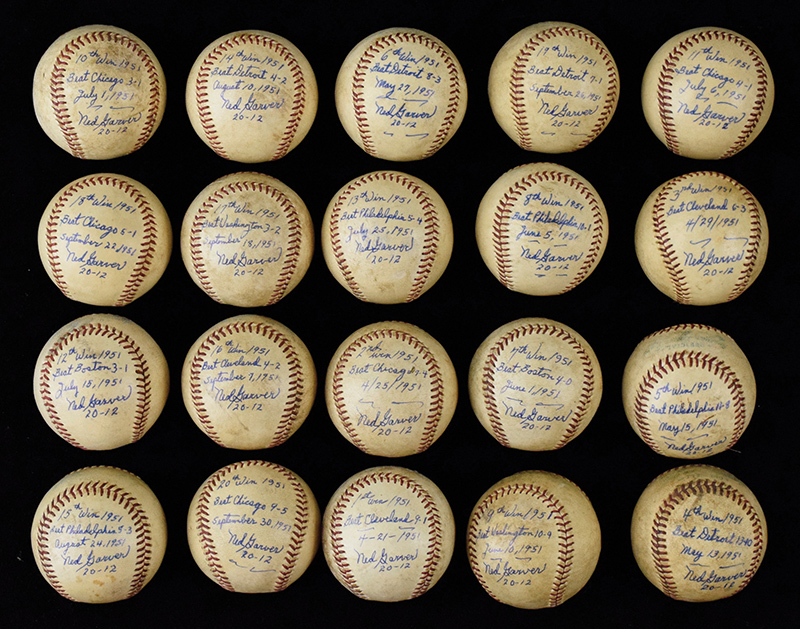 10th Win 1951
Beat Chicago 3-1
July 1, 1951
Ned Garver
20-12
14th Win 1951
Beat Detroit 4-2
August 10, 1951
Ned Garver
20-12
6th Win 1951
Beat Detroit 8-3
May 27, 1951
Ned Garver
20-12
19th Win 1951
Beat Detroit 7-1
September 26, 1951
Ned Garver
20-12
11th Win 1951
Beat Chicago 4-1
July 6, 1951
Ned Garver
20-12
18th Win 1951
Beat Chicago 5-1
September 22, 1951
Ned Garver
20-12
17th Win 1951
Beat Washington 3-2
September 18, 1951
Ned Garver
20-12
13th Win 1951
Beat Philadelphia 5-4
July 25, 1951
Ned Garver
20-12
8th Win 1951
Beat Philadelphia 10-1
June 5, 1951
Ned Garver
20-12
3rd Win, 1951
Beat Cleveland 6-3
4/29/1951
Ned Garver
20-12
12th Win 1951
Beat Boston 3-1
July 15, 1951
Ned Garver
20-12
16th Win 1951
Beat Cleveland 4-2
September 7, 1951
Ned Garver
20-12
2nd Win 1951
Beat Chicago
4/25/1951
Ned Garver
20-12
7th Win 1951
Beat Boston 4-0
June 1, 1951
Ned Garver
20-12
5th Win 1951
Beat Philadelphia
May 15, 1951
Ned Garver
20-12
15th Win 1951
Beat Philadelphia 5-3
August 24, 1951
Ned Garver
20-12
20th Win 1951
Beat Chicago 9-5
September 30, 1951
Ned Garver
20-12
1st Win 1951
Beat Cleveland 9-1
4-21-1951
Ned Garver
20-12
9th Win 1951
Beat Washington 10-9
June 10, 1951
Ned Garver
20-12
4th Win 1951
Beat Detroit
May 13, 1951
Ned Garver
20-12